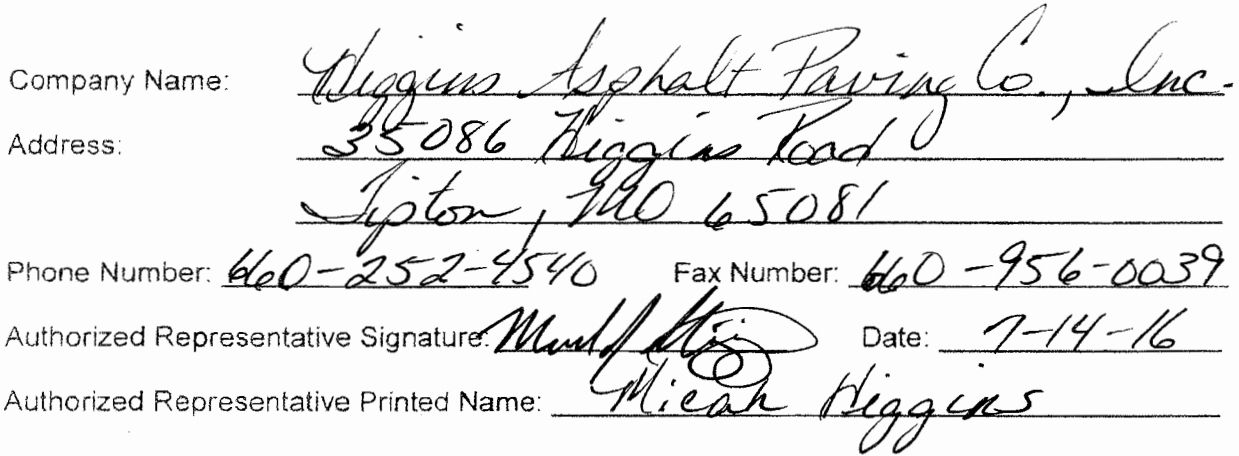 Company Name: Higgins Asphalt Paving Co., Inc.
Address: 35086 Higgins Road
Tipton, MO 65081
Phone Number: 660-252-4540 Fax Number: 660-956-0039
Authorized Representative Signature: Date: 7-14-16
Authorized Representative Printed Name: Micah Higgins